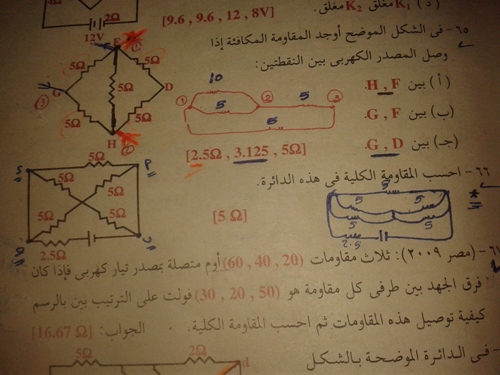 (د) K₁ مغلق K₂ مغلق.
2Ω
12V
[9.6 , 9.6 , 12 , 8V]
٦٥- فى الشكل الموضح أوجد المقاومة المكافئة إذا
وصل المصدر الكهربى بين النقطتين:
(أ) بين H , F.
(ب) بين G , F.
(جـ) بين G , D.
[2.5Ω , 3.125 , 5Ω]
F
5Ω
5Ω
G
5Ω
D
5Ω
5Ω
H
10
5
5
5
1
2
3
٦٦- احسب المقاومة الكلية فى هذه الدائرة.
[5 Ω]
5Ω
5Ω
5Ω
5Ω
5Ω
2.5Ω
5
5
5
5
5
2.5
(مصر ٢٠٠٩): ثلاث مقاومات (20 , 40 , 60) أوم متصلة بمصدر تيار كهربى فإذا كان
فرق الجهد بين طرفى كل مقاومة هو (50 , 20 , 30) فولت على الترتيب بين بالرسم
كيفية توصيل هذه المقاومات ثم احسب المقاومة الكلية. الجواب: [16.67 Ω]
فى الدائرة الموضحة بالشكل
5Ω
2Ω
d